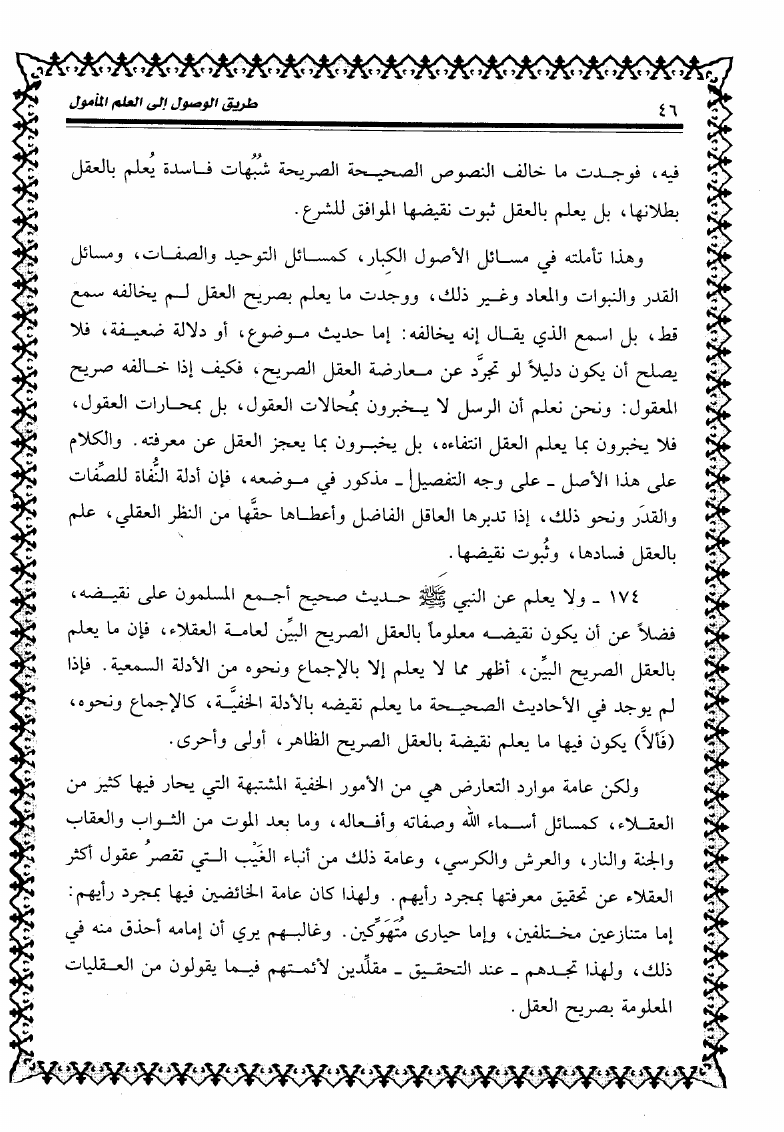 ٤٦
طريق الوصول إلى العلم المأمول
فيه، فوجدت ما خالف النصوص الصحيحة الصريحة شُبُهات فاسدة يُعلم بالعقل
بطلانها، بل يعلم بالعقل ثبوت نقيضها الموافق للشرع.
وهذا تأملته في مسائل الأصول الكبار، كمسائل التوحيد والصفات، ومسائل
القدر والنبوات والمعاد وغير ذلك، ووجدت ما يعلم بصريح العقل لم يخالفه سمع
قط، بل اسمع الذي يقال إنه يخالفه: إما حديث موضوع، أو دلالة ضعيفة، فلا
يصلح أن يكون دليلاً لو تجرَّد عن معارضة العقل الصريح، فكيف إذا خالفه صريح
المعقول: ونحن نعلم أن الرسل لا يخبرون بمُحالات العقول، بل بمحارات العقول،
فلا يخبرون بما يعلم العقل انتفاءه، بل يخبرون بما يعجز العقل عن معرفته. والكلام
على هذا الأصل ـ على وجه التفصيل ـ مذكور في موضعه، فإن أدلة النُّفاة للصِّفات
والقدَر ونحو ذلك، إذا تدبرها العاقل الفاضل وأعطاها حقَّها من النظر العقلي، علم
بالعقل فسادها، وثُبوت نقيضها.
١٧٤ ـ ولا يعلم عن النبي ﷺ حديث صحيح أجمع المسلمون على نقيضه،
فضلاً عن أن يكون نقيضه معلوماً بالعقل الصريح البيِّن لعامة العقلاء، فإن ما يعلم
بالعقل الصريح البيِّن، أظهر مما لا يعلم إلا بالإجماع ونحوه من الأدلة السمعية. فإذا
لم يوجد في الأحاديث الصحيحة ما يعلم نقيضه بالأدلة الخفيَّة، كالإجماع ونحوه،
(فَألاَّ) يكون فيها ما يعلم نقيضة بالعقل الصريح الظاهر، أولى وأحرى.
ولكن عامة موارد التعارض هي من الأمور الخفية المشتبهة التي يحار فيها كثير من
العقلاء، كمسائل أسماء الله وصفاته وأفعاله، وما بعد الموت من الثواب والعقاب
والجنة والنار، والعرش والكرسي، وعامة ذلك من أنباء الغَيْب التي تقصرُ عقول أكثر
العقلاء عن تحقيق معرفتها بمجرد رأيهم. ولهذا كان عامة الخائضين فيها بمجرد رأيهم:
إما متنازعين مختلفين، وإما حيارى مُتَهَوِّكين. وغالبهم يري أن إمامه أحذق منه في
ذلك، ولهذا تجدهم ـ عند التحقيق ـ مقلِّدين لأئمتهم فيما يقولون من العقليات
المعلومة بصريح العقل.